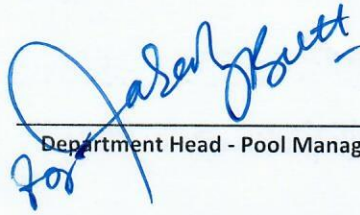 for
Department Head - Pool Manag